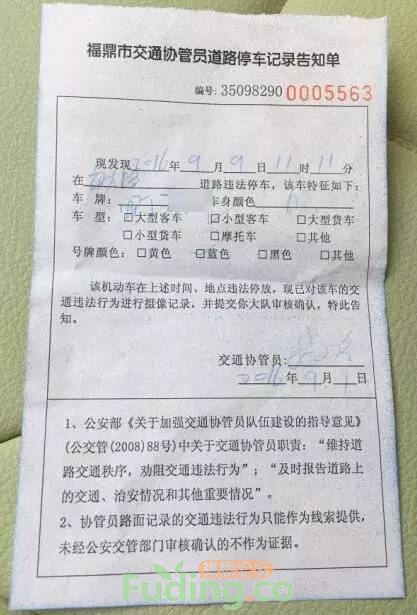 福鼎市交通协管员道路停车记录告知单
编号:35098290 0005563
现发现2016年9月9日11时11分
在 道路违法停车，该车特征如下:
车 牌: 车身颜色
车 型:□大型客车 □小型客车 □大型货车
□小型货车 □摩托车 □其他
号牌颜色:□黄色 □蓝色 □黑色 □其他
该机动车在上述时间、地点违法停放，现已对该车的交
通违法行为进行摄像记录，并提交你大队审核确认，特此告
知。
交通协管员:
2016年9月 日
1、公安部《关于加强交通协管员队伍建设的指导意见》
(公交管(2008)88号)中关于交通协管员职责:“维持道
路交通秩序，劝阻交通违法行为”;“及时报告道路上
的交通、治安情况和其他重要情况”。
2、协管员路面记录的交通违法行为只能作为线索提供，
未经公安交管部门审核确认的不作为证据。
Fuding.co